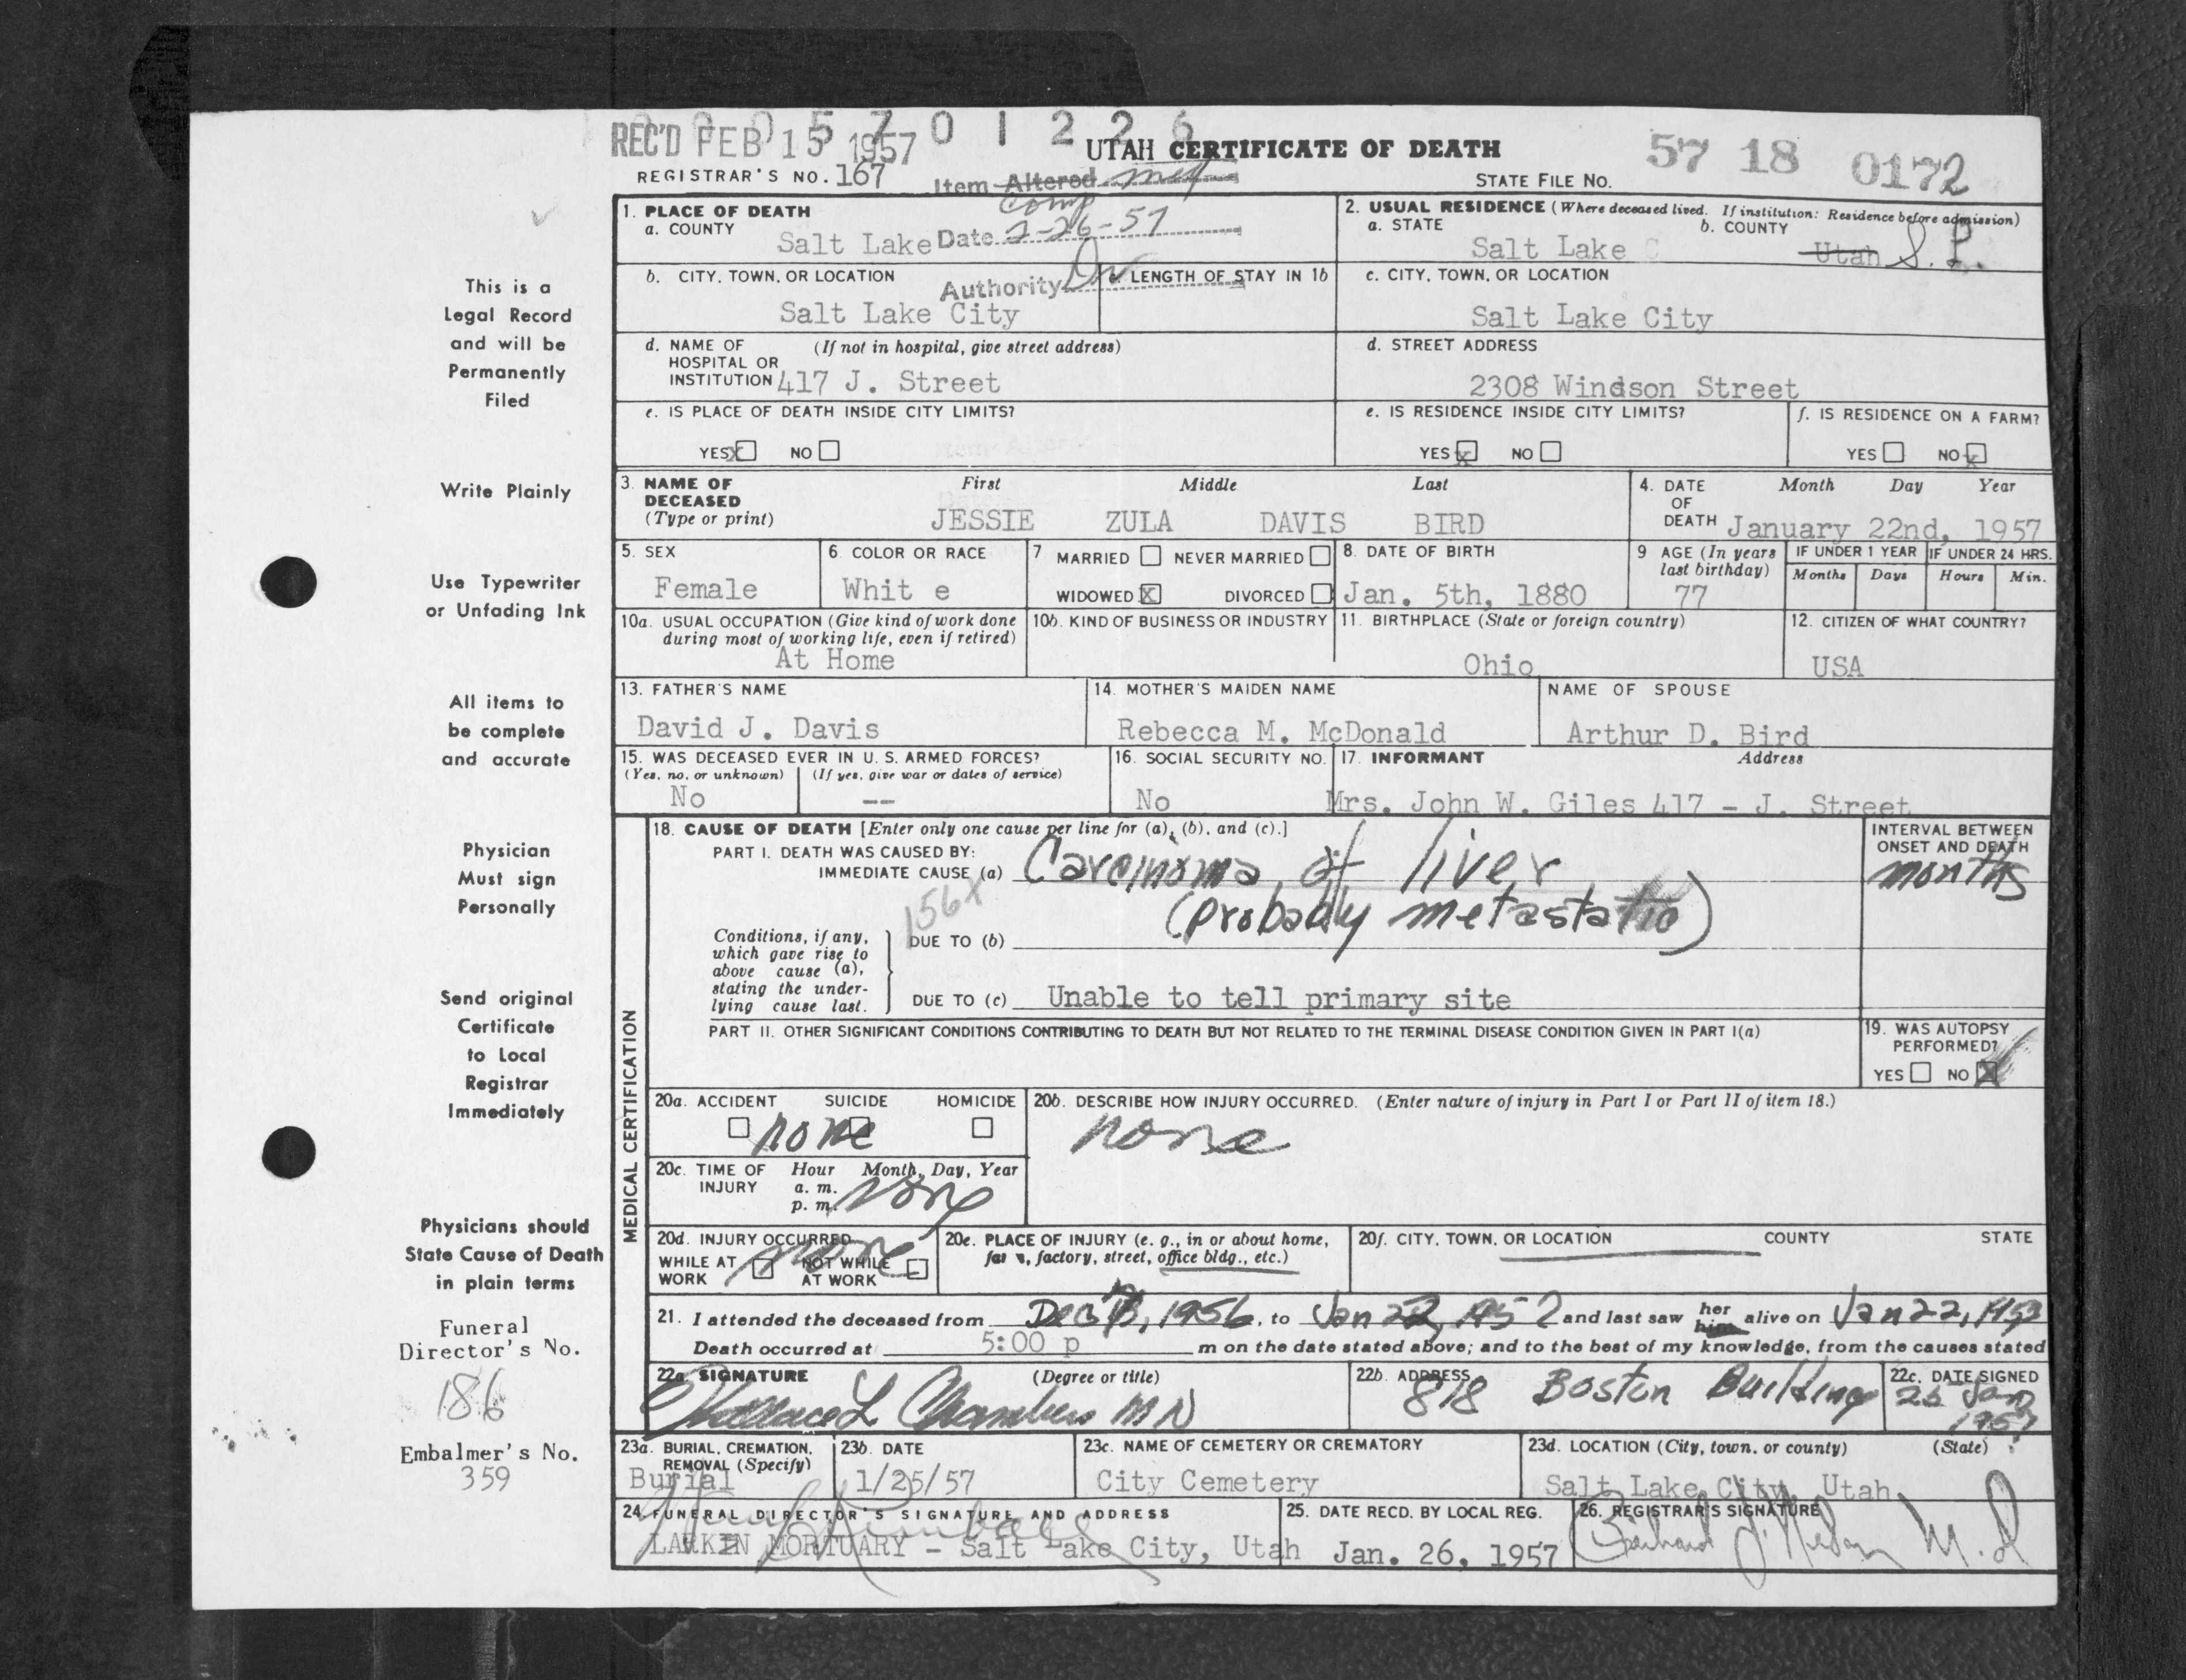 0 0 0 5 7 0 1 2 2 6
REC'D FEB 15 1957
UTAH CERTIFICATE OF DEATH
57 18 0172
REGISTRAR'S NO. 167
Item Altered
STATE FILE NO.
Comp
Date 2-26-57
Authority
1. PLACE OF DEATH
a. COUNTY
Salt Lake
2. USUAL RESIDENCE (Where deceased lived. If institution: Residence before admission)
a. STATE
Salt Lake
b. COUNTY
Utah S. L.
b. CITY, TOWN, OR LOCATION
Salt Lake City
c. LENGTH OF STAY IN 1b
c. CITY, TOWN, OR LOCATION
Salt Lake City
d. NAME OF (If not in hospital, give street address)
HOSPITAL OR
INSTITUTION 417 J. Street
d. STREET ADDRESS
2308 Windson Street
e. IS PLACE OF DEATH INSIDE CITY LIMITS?
YES X NO
e. IS RESIDENCE INSIDE CITY LIMITS?
YES X NO
f. IS RESIDENCE ON A FARM?
YES NO X
3. NAME OF DECEASED (Type or print)
First Middle Last
JESSIE ZULA DAVIS BIRD
4. DATE OF DEATH
Month Day Year
January 22nd, 1957
5. SEX
Female
6. COLOR OR RACE
Whit e
7 MARRIED NEVER MARRIED
WIDOWED X DIVORCED
8. DATE OF BIRTH
Jan. 5th, 1880
9 AGE (In years last birthday)
77
IF UNDER 1 YEAR IF UNDER 24 HRS.
Months Days Hours Min.
10a. USUAL OCCUPATION (Give kind of work done
during most of working life, even if retired)
At Home
10b. KIND OF BUSINESS OR INDUSTRY
11. BIRTHPLACE (State or foreign country)
Ohio
12. CITIZEN OF WHAT COUNTRY?
USA
13. FATHER'S NAME
David J. Davis
14. MOTHER'S MAIDEN NAME
Rebecca M. McDonald
NAME OF SPOUSE
Arthur D. Bird
15. WAS DECEASED EVER IN U. S. ARMED FORCES?
(Yes, no, or unknown) (If yes, give war or dates of service)
No --
16. SOCIAL SECURITY NO.
No
17. INFORMANT Address
Mrs. John W. Giles 417 - J. Street
MEDICAL CERTIFICATION
18. CAUSE OF DEATH [Enter only one cause per line for (a), (b), and (c).]
PART I. DEATH WAS CAUSED BY:
IMMEDIATE CAUSE (a) Carcinoma of liver
(probably metastatic)
156X
INTERVAL BETWEEN
ONSET AND DEATH
months
Conditions, if any,
which gave rise to
above cause (a),
stating the under-
lying cause last.
DUE TO (b)
DUE TO (c) Unable to tell primary site
PART II. OTHER SIGNIFICANT CONDITIONS CONTRIBUTING TO DEATH BUT NOT RELATED TO THE TERMINAL DISEASE CONDITION GIVEN IN PART I(a)
19. WAS AUTOPSY
PERFORMED?
YES NO X
20a. ACCIDENT SUICIDE HOMICIDE
none
20b. DESCRIBE HOW INJURY OCCURRED. (Enter nature of injury in Part I or Part II of item 18.)
none
20c. TIME OF INJURY
Hour Month, Day, Year
a. m.
p. m.
none
20d. INJURY OCCURRED
WHILE AT WORK NOT WHILE AT WORK
none
20e. PLACE OF INJURY (e. g., in or about home,
farm, factory, street, office bldg., etc.)
20f. CITY, TOWN, OR LOCATION COUNTY STATE
21. I attended the deceased from Dec 1956, to Jan 22, 1957 and last saw her him alive on Jan 22, 1957
Death occurred at 5:00 p m on the date stated above; and to the best of my knowledge, from the causes stated
22a SIGNATURE (Degree or title)
Wallace L Chambers M D
22b. ADDRESS
818 Boston Building
22c. DATE SIGNED
26 Jan
1957
23a. BURIAL, CREMATION,
REMOVAL (Specify)
Burial
23b. DATE
1/25/57
23c. NAME OF CEMETERY OR CREMATORY
City Cemetery
23d. LOCATION (City, town, or county) (State)
Salt Lake City, Utah
24. FUNERAL DIRECTOR'S SIGNATURE AND ADDRESS
LARKIN MORTUARY - Salt Lake City, Utah
25. DATE RECD. BY LOCAL REG.
Jan. 26, 1957
26. REGISTRAR'S SIGNATURE
M. D
This is a
Legal Record
and will be
Permanently
Filed
Write Plainly
Use Typewriter
or Unfading Ink
All items to
be complete
and accurate
Physician
Must sign
Personally
Send original
Certificate
to Local
Registrar
Immediately
Physicians should
State Cause of Death
in plain terms
Funeral
Director's No.
186
Embalmer's No.
359